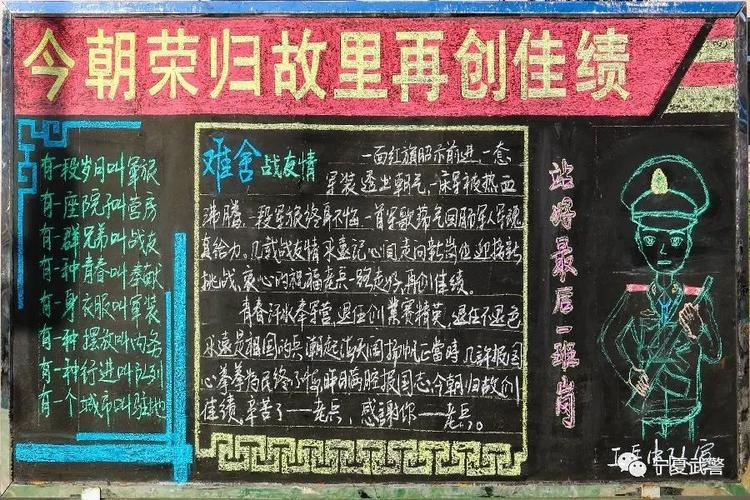 今朝荣归故里再创佳绩
有一段岁月叫军旅
有一座院子叫营房
有一群兄弟叫战友
有一种青春叫奉献
有一身衣服叫军装
有一种摆放叫内务
有一种行进叫队列
有一个城市叫驻地
难舍战友情
一面红旗昭示前进,一套
军装透出朝气,一床军被热血
沸腾,一段军旅终身不悔,一首军歌荡气回肠军人军魂
真给力。几载战友情永远记心间走向新岗位迎接新
挑战,衷心的祝福老兵一路走好,再创佳绩。
青春汗水奉军营,退伍创业赛精英,退伍不退色
永远是祖国的兵,潮起海天阔扬帆正当时,几许报国
心拳拳为民终不悔昨日满腔报国志今朝归故创
佳绩。辛苦了——老兵,感谢你——老兵。
站好最后一班岗
宁夏武警